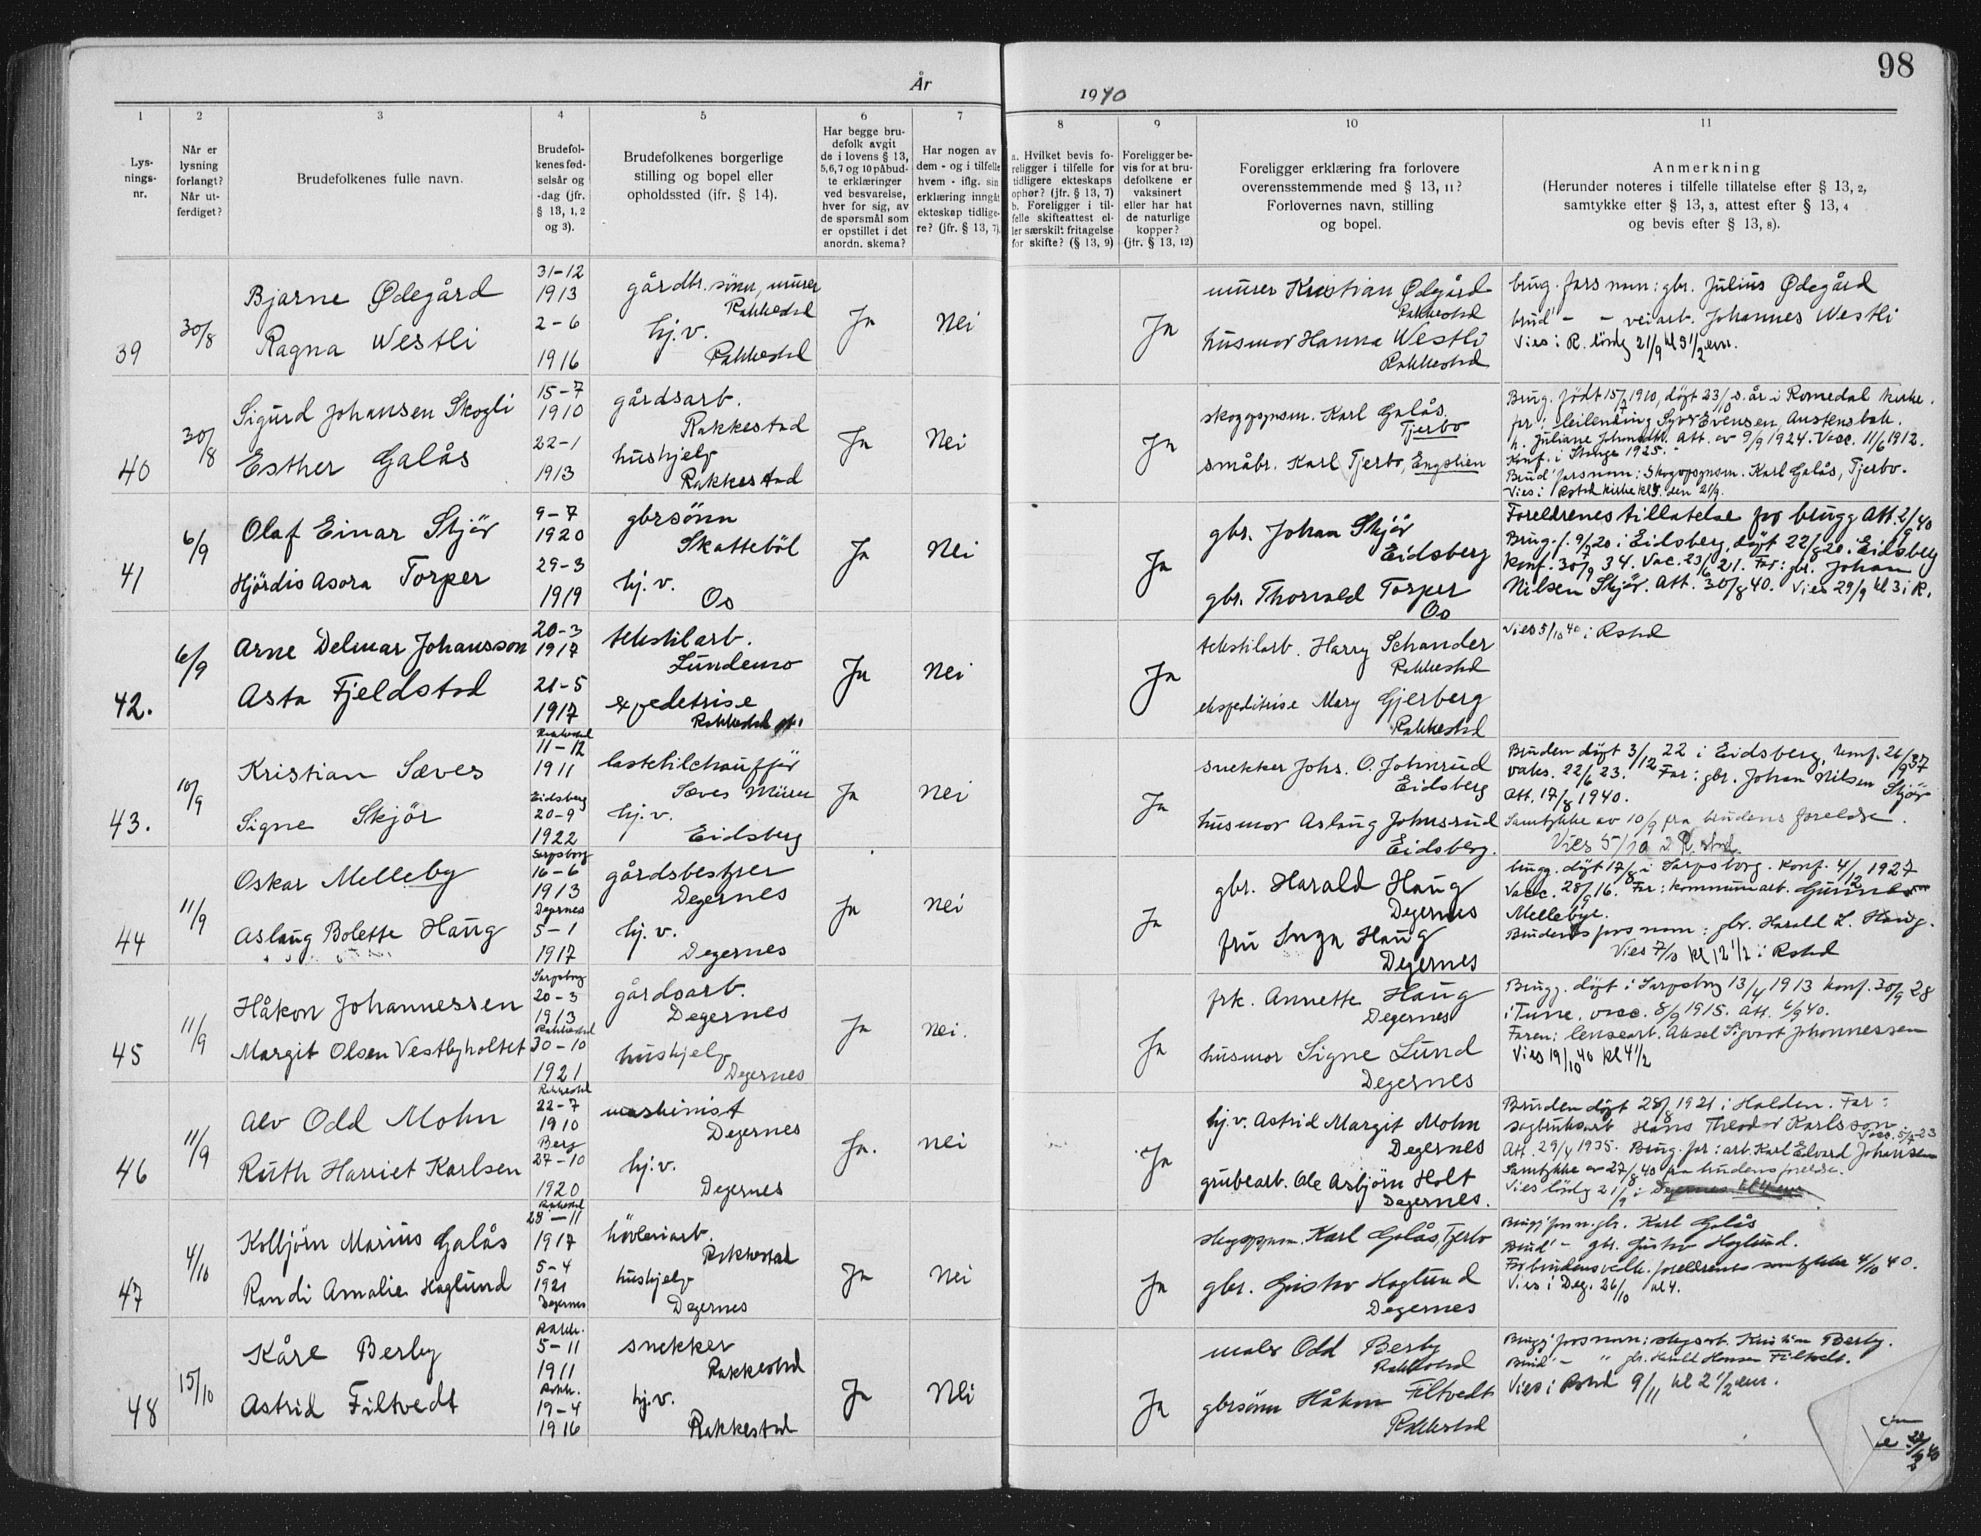 98
År 1940
1 2 3 4 5 6 7 8 9 10 11
Lys-
nings-
nr.
Når er
lysning
forlangt?
Når ut-
ferdiget?
Brudefolkenes fulle navn.
Brudefol-
kenes fød-
selsår og
-dag (jfr.
§ 13, 1, 2
og 3).
Brudefolkenes borgerlige
stilling og bopel eller
opholdssted (jfr. § 14).
Har begge bru-
defolk avgit
de i lovens § 13,
5,6,7 og 10 påbud-
te erklæringer
ved besvarelse,
hver for sig, av
de spørsmål som
er opstillet i det
anordn. skema?
Har nogen av
dem - og i tilfelle
hvem - iflg. sin
erklæring inngåt
ekteskap tidlige-
re? (jfr. § 13, 7).
a. Hvilket bevis fo-
religger i tilfelle for
tidligere ekteskaps
ophør? (jfr. § 13, 7)
b. Foreligger i til-
felle skifteattest el-
ler særskilt fritagelse
for skifte? (§ 13, 9)
Foreligger be-
vis for at bru-
defolkene er
vaksinert
eller har hat
de naturlige
kopper?
(jfr. § 13, 12)
Foreligger erklæring fra forlovere
overensstemmende med § 13, 11?
Forlovernes navn, stilling
og bopel.
Anmerkning
(Herunder noteres i tilfelle tillatelse efter § 13, 2,
samtykke efter § 13, 3, attest efter § 13, 4
og bevis efter § 13, 8).
39
30/8
Bjarne Ødegård
Ragna Westli
31-12
1913
2-6
1916
gårdbr. sønn, murer
Rakkestad
hj.v.
Rakkestd
Ja
Nei
Ja
murer Kristian Ødegård
Rakkestd
husmor Hanna Westli
Rakkestd
brug. fars navn: gbr. Julius Ødegård
brud' - - veiarb. Johannes Westli
Vies i R. lørdg 21/9 kl 3 1/2 em.
40
30/8
Sigurd Johansen Skogli
Esther Galås
15-7
1910
22-1
1913
gårdsarb.
Rakkestad
hushjelp
Rakkestad
Ja
Nei
Ja
skogopsynsm. Karl Galås
Tjerbo
småbr. Karl Tjerbo, Engslien
Brug. født 15/7 1910, døpt 23/10 s. år i Romedal kirke.
Juliane Att. av 9/9 1924. Vacc. 11/6 1912.
Konf. i Stange 1925.
Brud' fars navn: Skogopsynsm. Karl Galås, Tjerbo.
Vies i Rstd kirke kl 5. den 21/9.
41
6/9
Olaf Einar Skjør
Hjørdis Asora Torper
9-7
1920
29-3
1919
gbrsønn
Skattebøl
hj.v.
Os
Ja
Nei
Ja
gbr. Johan Skjør
Eidsberg
gbr. Thorvald Torper
Os
Foreldrenes tillatelse for brugg Att. 2/9 40
Brug. f. 9/7 20 i Eidsberg, døpt 22/8 20 i Eidsberg
Konf. 30/9 34. Vac. 23/6 21. Far: gbr. Johan
Nilsen Skjør. Att. 30/8 40. Vies 29/9 kl 3 i R.
42.
6/9
Arne Delmar Johansson
Asta Fjeldstad
20-3
1917
21-5
1917
tekstilarb.
Lundemo
expeditrise
Rakkestad
Ja
Nei
Ja
tekstilarb. Harry Schander
Rakkestd
ekspeditrise Mary Gjerberg
Rakkestd
Vies 5/10 40 i Rstd
43.
10/9
Kristian Sæves
Signe Skjør
Rakkestd
11-12
1911
Eidsberg
20-9
1922
lastebilchauffør
Sæves
hj.v.
Eidsberg
Ja
Nei
Ja
snekker Johs. O. Johnsrud
Eidsberg
husmor Aslaug Johnsrud
Eidsberg.
Bruden døpt 3/12 22 i Eidsberg, konf. 26/9 37
vaks. 22/6 23. Far: gbr. Johan Nilsen Skjør
Att. 17/8 1940.
Samtykke av 10/9 fra brudens foreldre.
Vies 5/10 i Rstd
44
11/9
Oskar Melleby
Aslaug Bolette Haug
Sarpsborg
16-6
1913
Degernes
5-1
1917
gårdsbestyrer
Degernes
hj.v.
Degernes
Ja
Nei
Ja
gbr. Harald Haug
Degernes
fru Inga Haug
Degernes
brugg. døpt 17/8 i Sarpsborg. Konf. 4/12 1927
Vacc. 28/9 16. Far: kommunarb. Gunnar
Mellebye.
Brudens fars navn: gbr. Harald L. Haug.
Vies 7/10 kl 12 1/2 i Rstd
45
11/9
Håkon Johannessen
Margit Olsen Vestbyholtet
Sarpsborg
20-3
1913
Rakkestd
30-10
1921
gårdsarb.
Degernes
hushjelp
Degernes
Ja
Nei.
Ja
frk. Annette Haug
Degernes
husmor Signe Lund
Degernes
Brugg. døpt i Sarpsborg 13/4 1913 konf. 30/9 28
i Tune, vacc. 8/9 1915. att. 6/9 40.
Faren: lensearb. Aksel Sigvart Johannessen
Vies 19/10 40 kl 4 1/2
46
11/9
Alv Odd Mohn
Ruth Harriet Karlsen
Rakkestd
22-7
1910
Berg
27-10
1920
maskinist
Degernes
hj.v.
Degernes
Ja.
nei
Ja
hj.v. Astrid Margit Mohn
Degernes
grubearb. Ole Asbjørn Holt
Degernes.
Bruden døpt 28/8 1921 i Halden. Far:
sagbruksarb Hans Theodor Karlsson
Vacc. 5/7 23
Att. 29/4 1935. Brug. far: arb. Karl Edvard Johansen
Samtykke av 27/8 40 fra brudens foreldre.
Vies lørdg 21/9 i Degernes kl 4 em.
47
4/10
Kolbjørn Marius Galås
Randi Amalie Haglund
Rakkestd
28-11
1917
5-4
1921
Degernes
høvleriarb.
Rakkestad
hushjelp
Degernes
Ja
Nei
Ja
skogopsynsm. Karl Galås, Tjerbo
gbr. Gustav Haglund
Degernes
Brugg' far n. gbr. Karl Galås
Brud' - gbr. Gustav Haglund.
foreldrenes samtykke 4/10 40.
Vies i Deg. 26/10 kl 4.
48
15/10
Kåre Berby
Astrid Filtvedt
Rakk.
5-11
1911
Rakk.
19-4
1916
snekker
Rakkestd
hj.v.
Rakkestad
Ja
Nei
Ja
maler Odd Berby
Rakkestd
gbrsønn Håkon Filtvedt
Rakkestd
Brugg' fars navn: skogsarb. Kristian Berby.
Brud' - " gbr. Harald Hansen Filtvedt.
Vies i Rstd 9/11 kl 2 1/2 em.